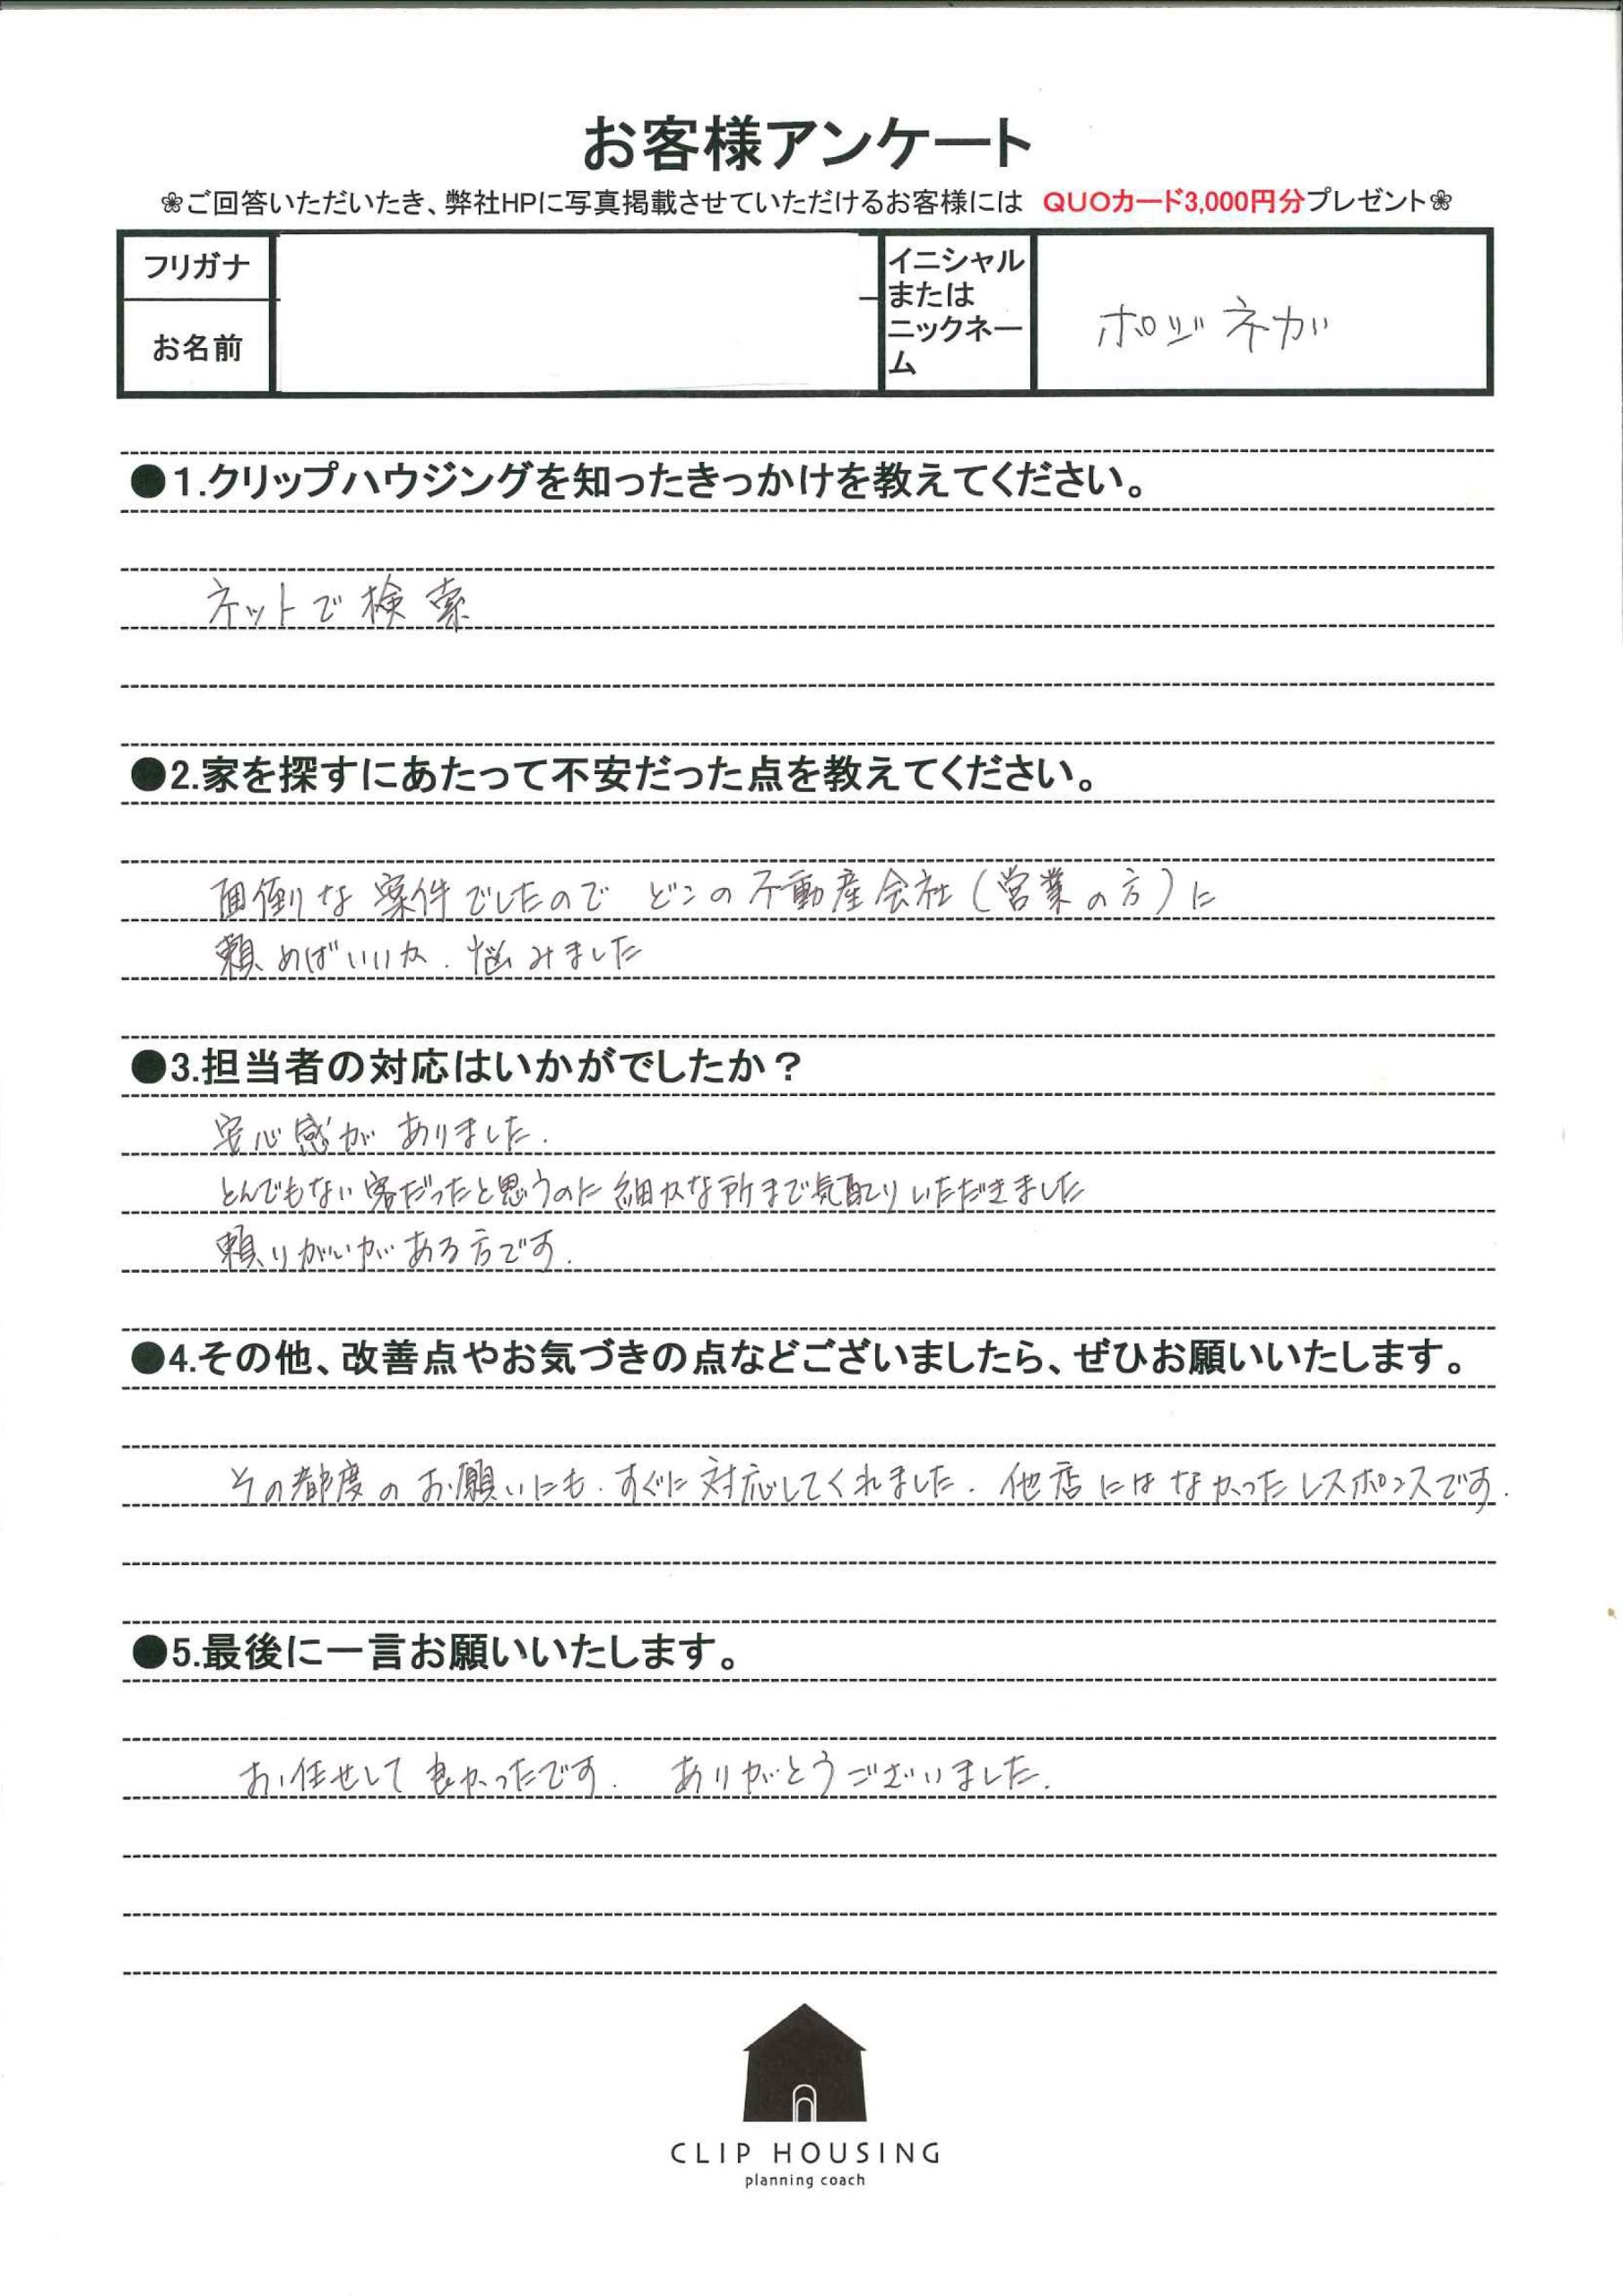 お客様アンケート
❀ご回答いただいたき、弊社HPに写真掲載させていただけるお客様には QUOカード3,000円分プレゼント❀
フリガナ
お名前
イニシャル
または
ニックネー
ム
ポジネガ
●1.クリップハウジングを知ったきっかけを教えてください。
ネットで検索
●2.家を探すにあたって不安だった点を教えてください。
面倒な案件でしたので どこの不動産会社(営業の方)に
頼めばいいか. 悩みました
●3.担当者の対応はいかがでしたか？
安心感がありました.
とんでもない客だったと思うのに細かな所まで気配りいただきました
頼りがいがある方です.
●4.その他、改善点やお気づきの点などございましたら、ぜひお願いいたします。
その都度のお願いにも. すぐに対応してくれました. 他店にはなかったレスポンスです.
●5.最後に一言お願いいたします。
お任せして良かったです. ありがとうございました.
CLIP HOUSING
planning coach